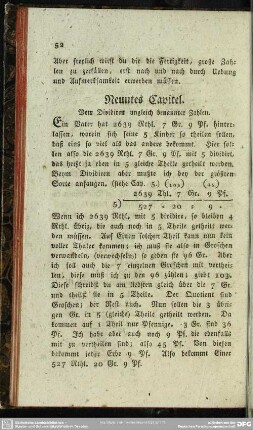 52
Aber freylich wirst du die die Fertigkeit, große Zah-
len zu zerfällen, erst nach und nach durch Uebung
und Aufmerksamkeit erwerben müssen.
Neuntes Capitel.
Vom Dividiren ungleich benannter Zahlen.
Ein Vater hat 2639 Rthl. 7 Gr. 9 Pf. hinter-
lassen, worein sich seine 5 Kinder so theilen sollen,
daß eins so viel als das andere bekommt. Hier sol-
len also die 2639 Rthl. 7 Gr. 9 Pf. mit 5 dividirt,
das heißt ja eben in 5 gleiche Theile getheilt werden.
Beym Dividiren aber mußte ich bey der größten
Sorte anfangen. (siehe Cap. 5.)
2639 Thl. 7 Gr. 9 Pf.
5)
527 . 20 . 9 .
Wenn ich 2639 Rthl. mit 5 dividire, so bleiben 4
Rthl. übrig, die auch noch in 5 Theile getheilt wer-
den müssen. Auf Einen solchen Theil kann nun kein
voller Thaler kommen; ich muß sie also in Groschen
verwandeln, (verwechseln) so geben sie 96 Gr. Aber
ich soll auch die 7 einzelnen Groschen mit verthei-
len, diese muß ich zu den 96 zählen; giebt 103.
Diese schreibst du am liebsten gleich über die 7 Gr.
und theilst sie in 5 Theile. Der Quotient sind
Groschen; der Rest auch. Nun sollen die 3 übri-
gen Gr. in 5 (gleiche) Theile getheilt werden. Da
kommen auf 1 Theil nur Pfennige. 3 Gr. sind 36
Pf. Ich habe aber noch 9 Pf. die ebenfalls
mit zu vertheilen sind; also 45 Pf. Von diesen
bekommt jeder Erbe 9 Pf. Also bekommt Einer
527 Rthl. 20 Gr. 9 Pf.